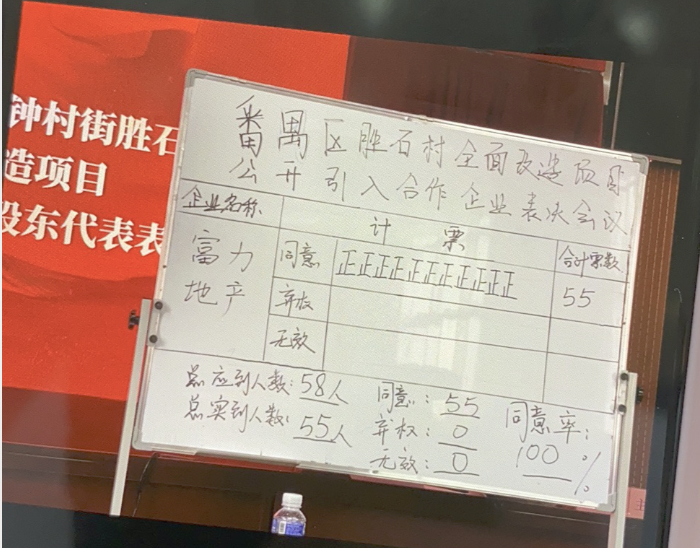 钟村街胜石
造项目
股东代表表
番禺区胜石村全面改造项目
公开引入合作企业表决会议
企业名称
计票
合计票数
富力
地产
同意
正正正正正正正正正正正
55
弃权
无效
总应到人数:58人
总实到人数:55人
同意:55
弃权:0
无效:0
同意率:
100%